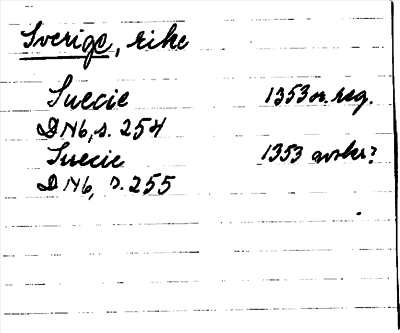 Sverige, rike
Suecie 1353 or. reg.
DN6, s. 254
Suecie 1353 avskr?
DN6, s. 255